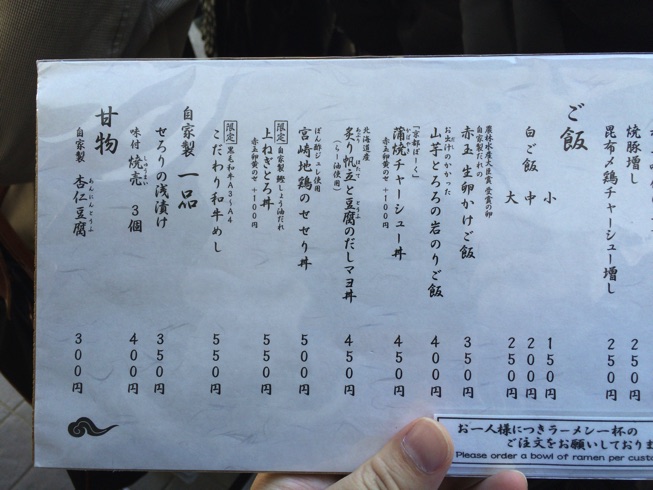 焼豚増し 250円
昆布〆鶏チャーシュー増し 250円
ご飯
白ご飯 小 150円
中 200円
大 250円
農林水産大臣賞 受賞の卵
自家製だれの
赤玉 生卵かけご飯 350円
お出汁のやかった
山芋とろろの岩のりご飯 400円
「京都ぽーく」
かばやき
蒲焼チャーシュー丼 450円
赤玉卵黄のせ+100円
北海道産
あぶり ほたて とうふ
炙り帆立と豆腐のだしマヨ丼 450円
(らー油使用)
ぽん酢ジュレ使用
宮崎地鶏のせせり丼 500円
限定 自家製 鰹しょう油だれ
上ねぎとろ丼 550円
赤玉卵黄のせ+100円
限定 黒毛和牛A3〜A4
こだわり和牛めし 550円
自家製 一品
せろりの浅漬け 350円
しゅうまい
味付 焼売 3個 400円
甘物
あんにんとうふ
自家製 杏仁豆腐 300円
お一人様につきラーメン一杯の
ご注文をお願いしておりま
Please order a bowl of ramen per custo